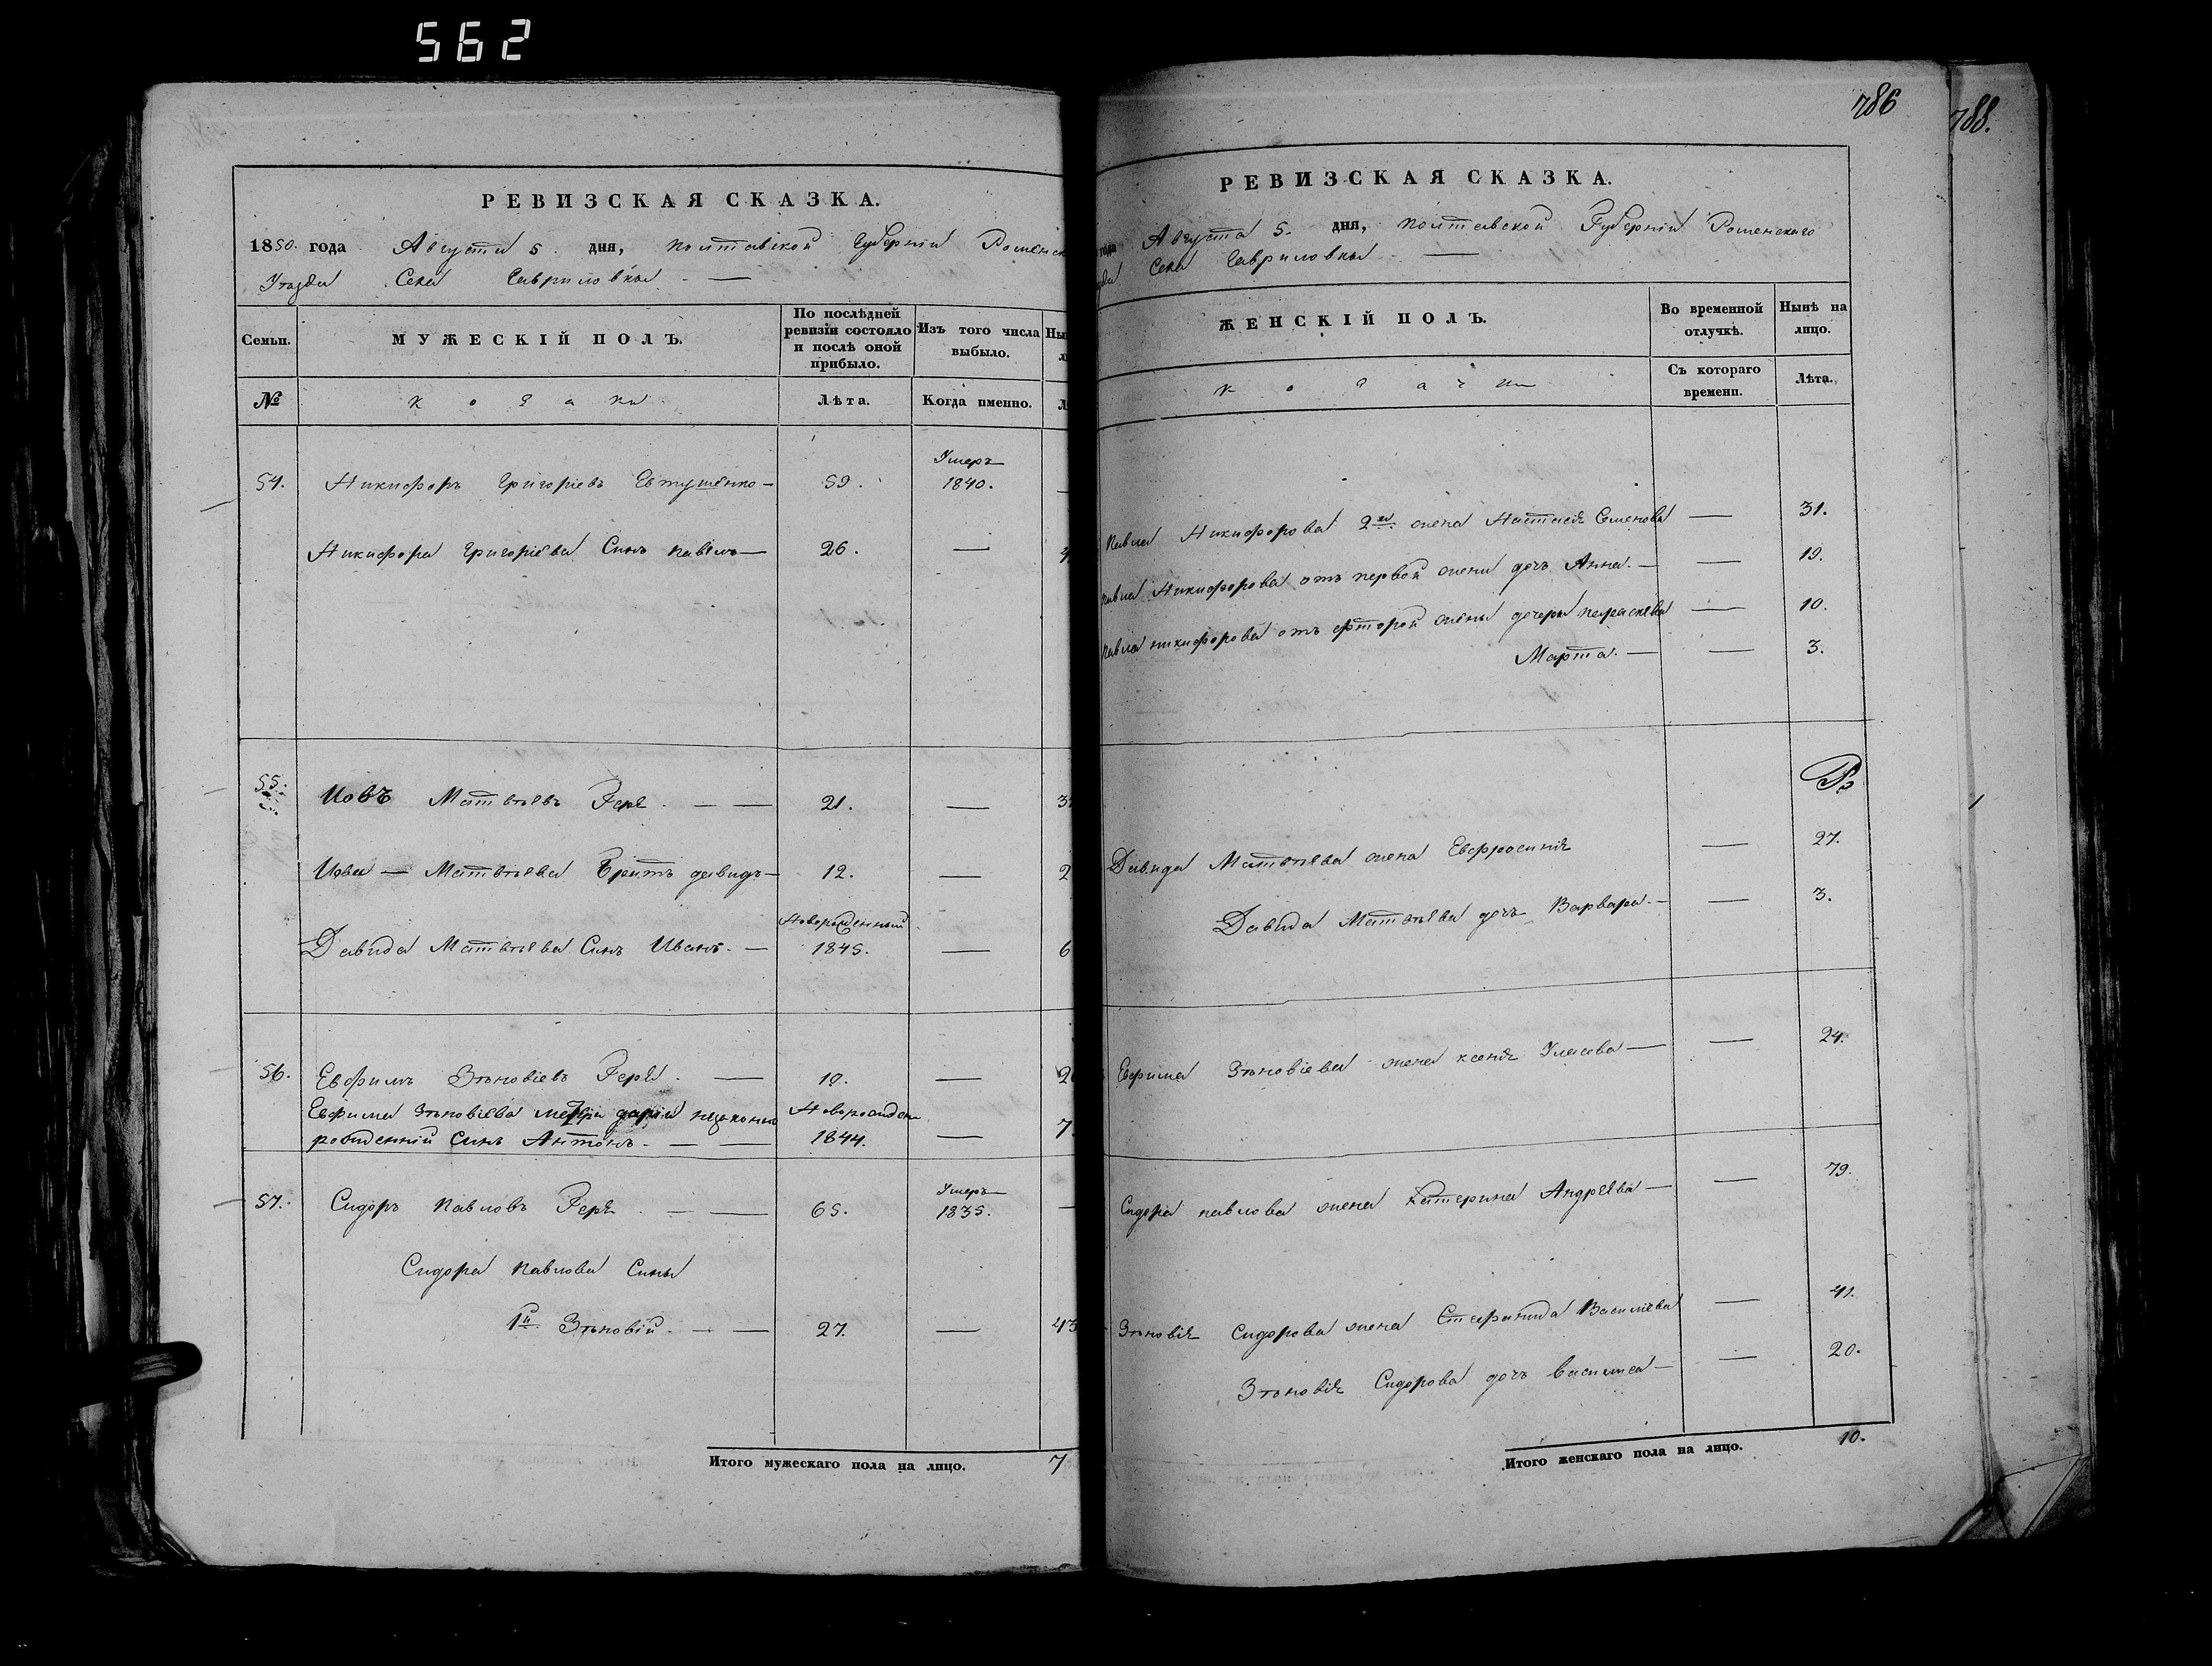 562
РЕВИЗСКАЯ СКАЗКА.
1850. года Августа 5. дня, Полтавской Губерніи Роменск
Уѣзда Села Гавриловки —
Семьи.
МУЖЕСКІЙ ПОЛЪ.
По послѣдней ревизіи состояло и послѣ оной прибыло.
Изъ того числа выбыло.
Ны
№
козаки
Лѣта.
Когда именно.
54. Никифоръ Григоріевъ Евтушенко — 59. Умеръ 1840. —
Никифора Григоріева Сынъ Павелъ — 26. —
55. Иовъ Матвѣевъ Геря. — — 21. —
Иова — Матвѣева Братъ давидъ — 12. — 2
Давида Матвѣева Сынъ Иванъ. — Новорожденный 1845. — 6
56. Евфимъ Зѣновіевъ Геря. — 10. — 2
Евфима Зѣновіева матери даріи незаконно
рожденній Сынъ Антонъ. — — Новорожден 1844. — 7.
57. Сидоръ Павловъ Геря. — — 65. Умеръ 1835. —
Сидора Павлова Сины
1й Зѣновій. — — 27. — 43
Итого мужескаго пола на лицо. 7
786
788.
РЕВИЗСКАЯ СКАЗКА.
года Августа 5. дня, Полтавской Губерніи Роменскаго
Села Гавриловки —
ЖЕНСКІЙ ПОЛЪ.
Во временной отлучкѣ.
Нынѣ на лицо.
козачки
Съ котораго времени.
Лѣта.
Павла Никифорова 2я жена Настасія Семенова — 31.
Павла Никифорова отъ первой жени дочь Анна. — — 19.
Павла никифорова отъ фторой жены дочери параскева — 10.
Марта. — — 3.
Давида Матвѣева жена Евфросинія — 27.
Давида Матвѣева дочь Варвара. — — 3.
Евфима Зѣновіева жена ксенія Уласова — — 24.
Сидора павлова жена Катерина Андреева — — 79.
Зѣновія Сидорова жена Стефанида Василіева — 41.
Зѣновія Сидорова дочь Василиса — — 20.
Итого женскаго пола на лицо. 10.